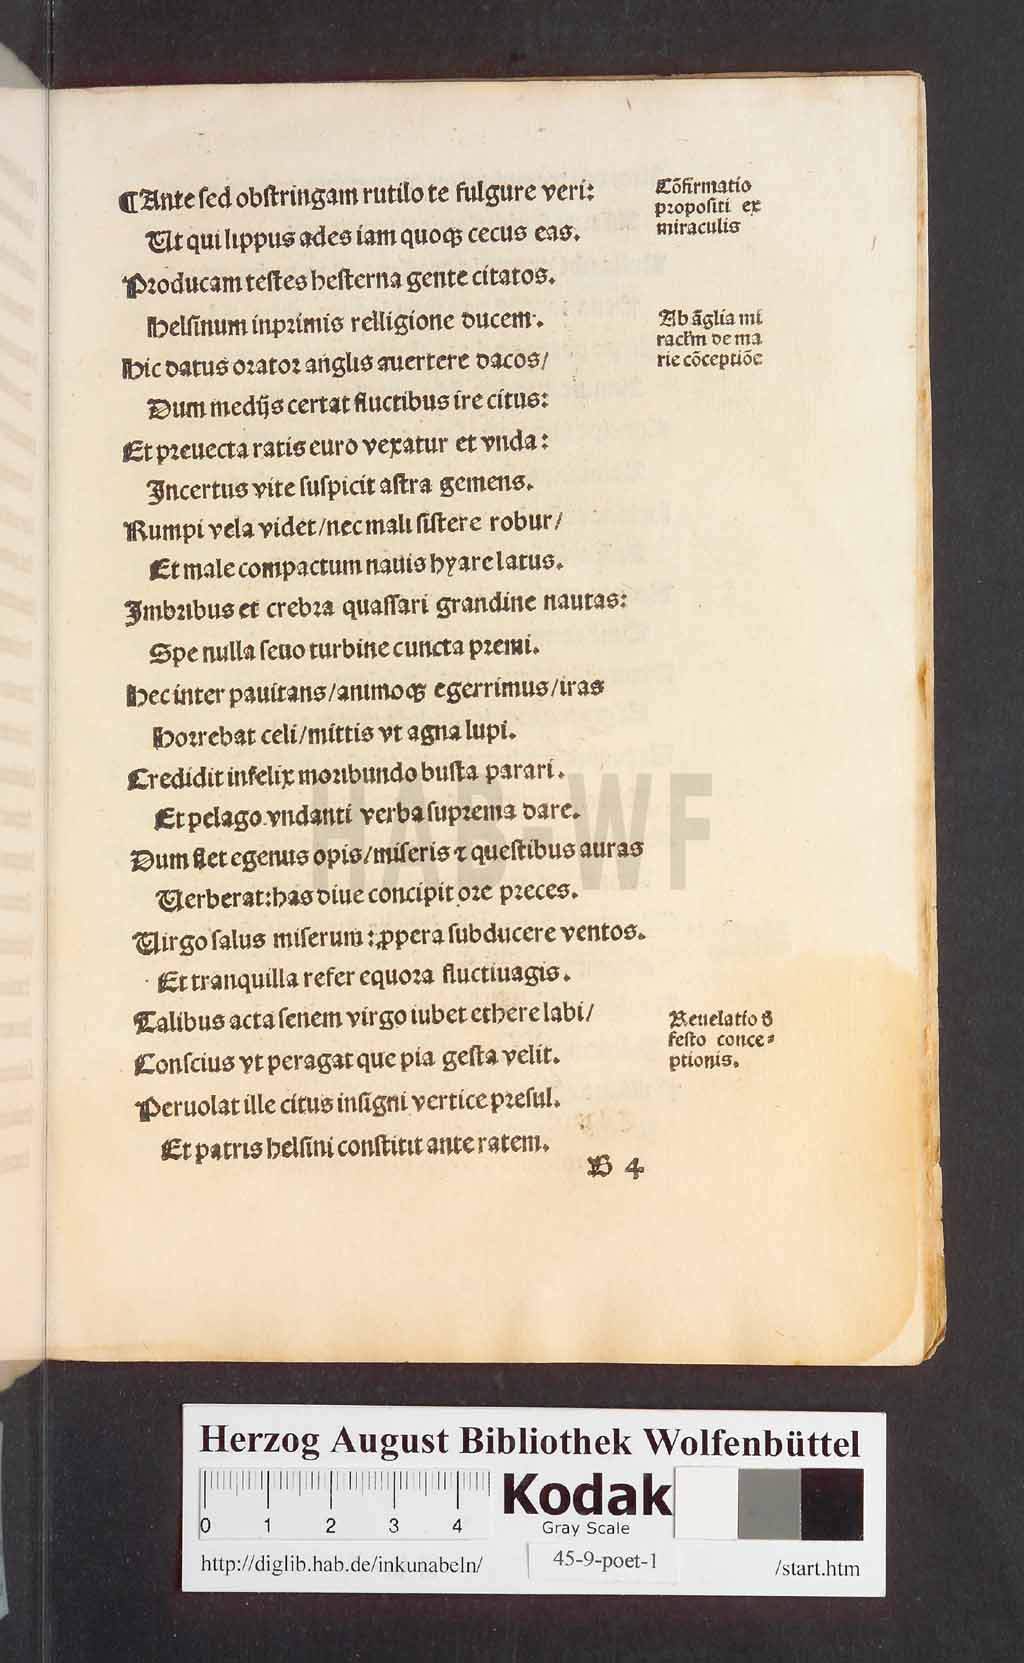 ¶Ante ſed obſtringam rutilo te fulgure veri:
Ut qui lippus ades iam quoqꝫ cecus eas.
Producam teſtes heſterna gente citatos.
Helſinum inprimis relligione ducem.
Hic datus orator anglis auertere dacos/
Dum medijs certat fluctibus ire citus:
Et preuecta ratis euro vexatur et vnda:
Incertus vite ſuſpicit aſtra gemens.
Rumpi vela videt/nec mali ſiſtere robur/
Et male compactum nauis hyare latus.
Imbribus et crebra quaſſari grandine nautas:
Spe nulla ſeuo turbine cuncta premi.
Hec inter pauitans/animoqꝫ egerrimus/iras
Horrebat celi/mittis vt agna lupi.
Credidit infelix moribundo buſta parari.
Et pelago vndanti verba ſuprema dare.
Dum flet egenus opis/miſeris ⁊ queſtibus auras
Uerberat:has diue concipit ore preces.
Uirgo ſalus miſerum:ꝓpera ſubducere ventos.
Et tranquilla refer equora fluctiuagis.
Talibus acta ſenem virgo iubet ethere labi/
Conſcius vt peragat que pia geſta velit.
Peruolat ille citus inſigni vertice preſul.
Et patris helſini conſtitit ante ratem.
B 4
Cõfirmatio
propoſiti ex
miraculis
Ab ãglia mi
racľm de ma
rie cõceptiõe
Reuelatio
feſto conce⸗
ptionis.
HAB-WF
Herzog August Bibliothek Wolfenbüttel
0 1 2 3 4
Kodak
Gray Scale
http://diglib.hab.de/inkunabeln/
45-9-poet-1
/start.htm